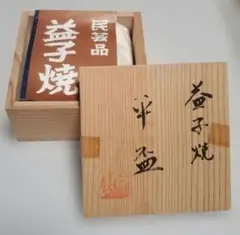 民芸品
益子焼
益子焼
平盃